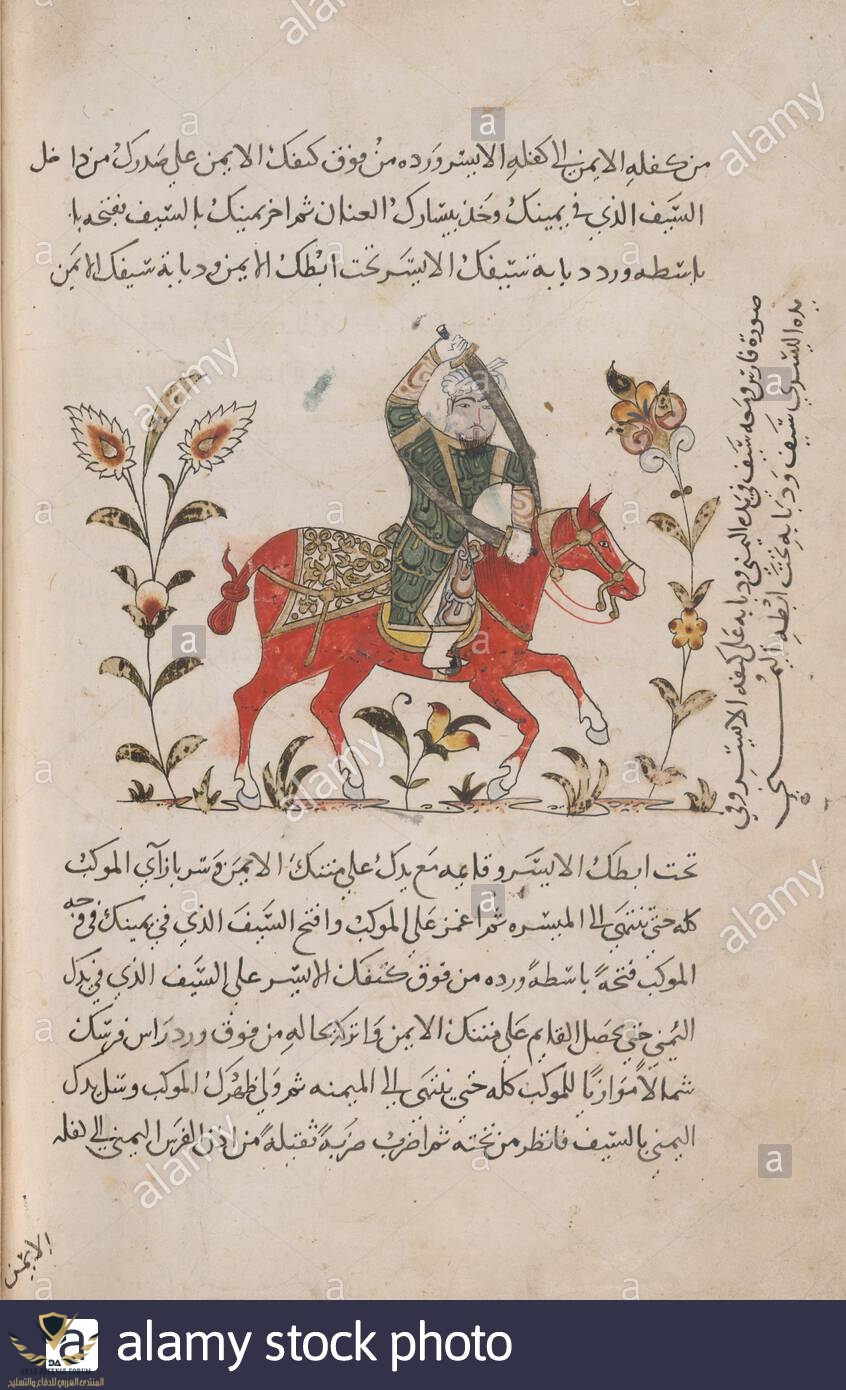 من كفله الايمن الى كفله الايسر ورده من فوق كتفك الايمن على صدرك من داخل
السيف الذي في يمينك وخذ بيسارك العنان ثم اخر يمينك بالسيف بفتحه با
باسطه ورد ذبابة سيفك الايسر تحت ابطك الايمن وذبابة سيفك الايمن
صورة فارس ومعه سيف في يده اليمنى وذبابه على كتفه الايسر وفي
يده اليسرى سيف وذبابه تحت ابطه اليمنى
تحت ابطك الايسر وقاعه مع يدك على متنك الايمن وسر بازآي الموكب
كله حتى ينتهى الى الميسره ثم اغمز على الموكب وافتح السيف الذي في يمينك في وجه
الموكب فتحةً باسطةً ورده من فوق كتفك الايسر على السيف الذي في يدك
اليمنى حتى يحصل القايم على متنك الايمن واتركه بحاله من فوق ورد راس فرسك
شمالاً موازياً للموكب كله حتى ينتهى الى الميمنه ثم ولي ظهرك الموكب وسل يدك
اليمنى بالسيف فانظر من تحته ثم اضرب ضربةً ثقيلةً من اذن الفرس اليمنى الى كفله
الايمن
alamy stock photo
المنتدى العربي للدفاع والتسليح